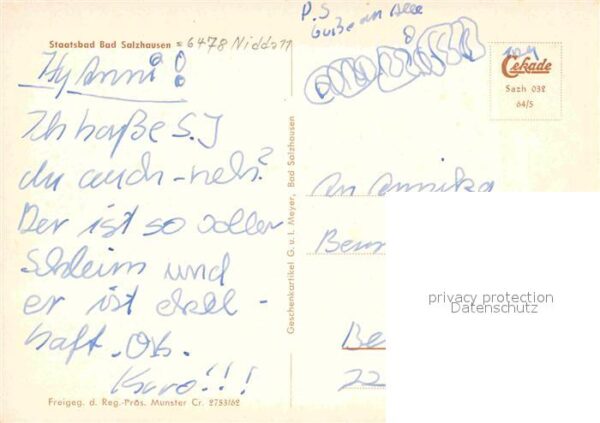 Staatsbad Bad Salzhausen = 6478 Nidda 11
Hy Anni!
Ich haße S.J
du auch - neh?
Der ist so voller
Schleim und
er ist ekel -
haft. Ok.
Karo!!!
Freigeg. d. Reg.-Präs. Münster Cr. 2753/62
Geschenkartikel G. u. I. Meyer, Bad Salzhausen
P.S
Grüße an alle
Cekade
Sazh 032
64/5
An Annika
Be
22
privacy protection
Datenschutz